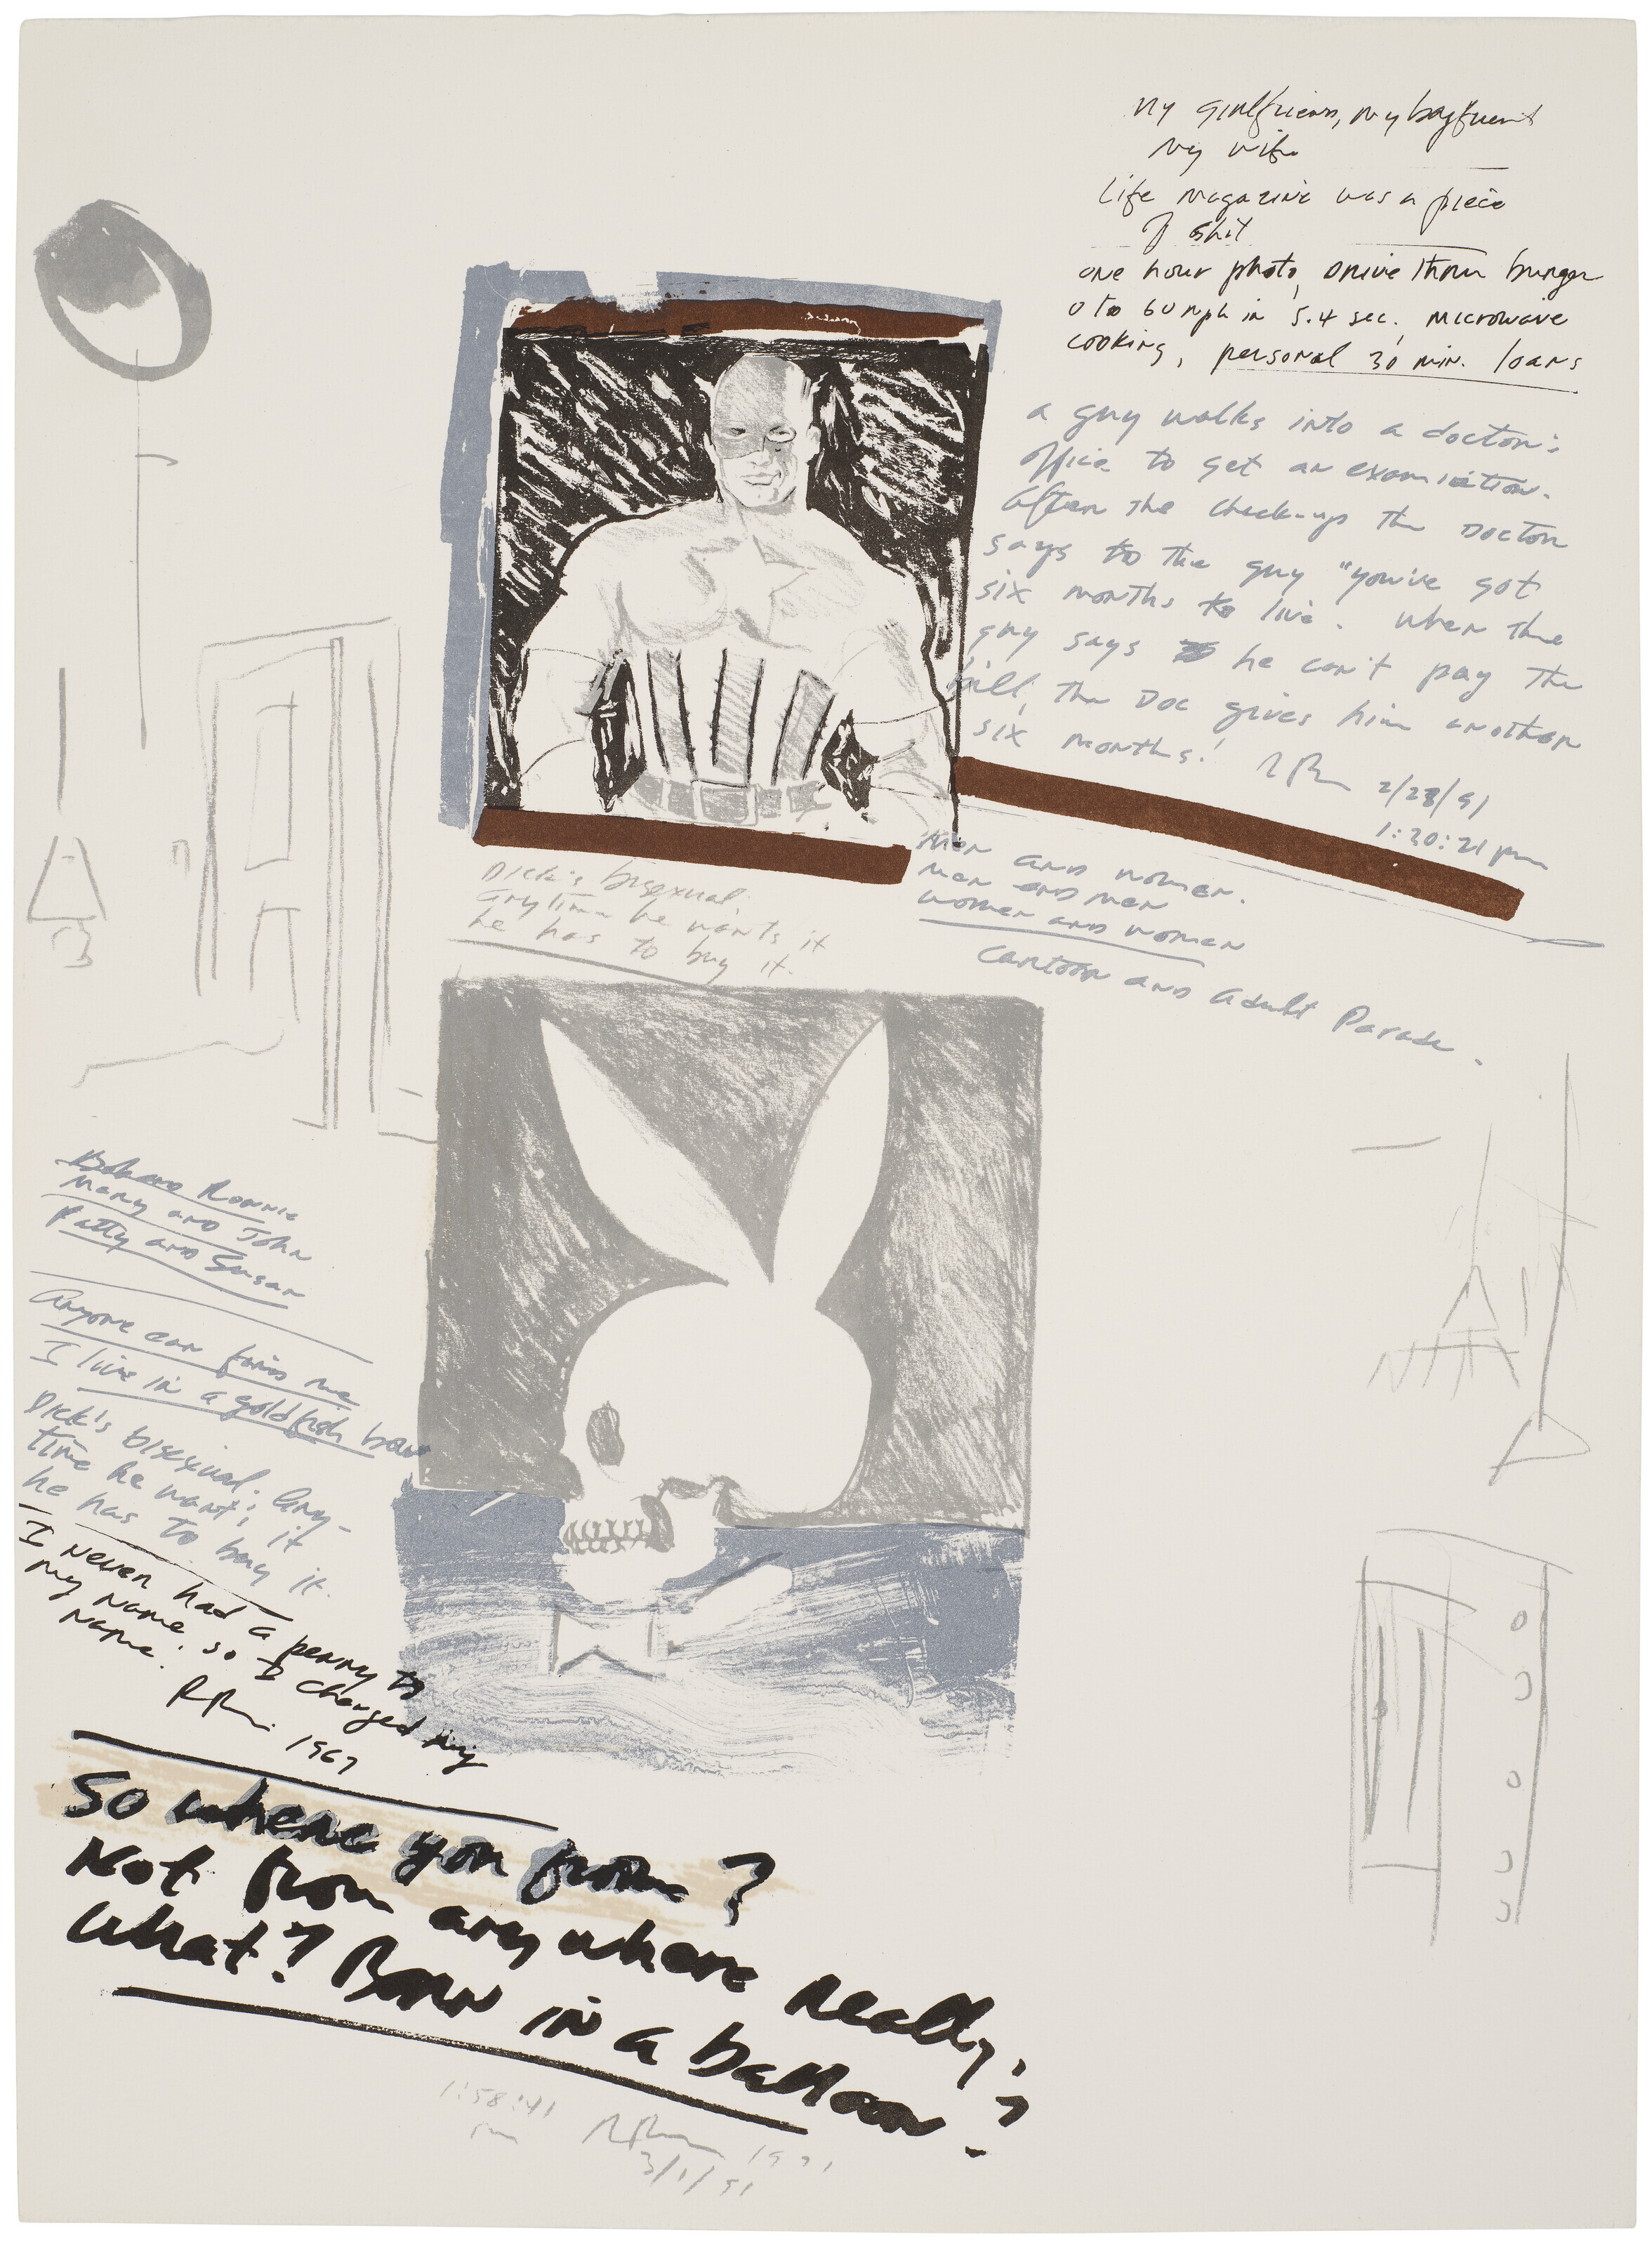 My girlfriend, my boyfriend
my wife
Life magazine was a piece
of shit
one hour photo, Drive thru burger
0 to 60 mph in 5.4 sec. microwave
cooking, personal 30 min. loans
a guy walks into a doctor's
office to get an examination.
After the check-up the Doctor
says to the guy "you've got
six months to live. When the
guy says he can't pay the
bill, the Doc gives him another
six months!
2/28/91
1:30:21 pm
Men and women.
men and men
women and women
Cartoon and Adult Parade.
Dick's bisexual.
anytime he wants it
he has to buy it.
Ronnie
Mary and John
Patty and Susan
Anyone can find me
I live in a goldfish bowl
Dick's bisexual. Any-
time he wants it
he has to buy it.
I never had a penny to
my name. so I changed my
name.
1967
So where you from?
Not from anywhere really.
What? Born in a balloon?
1:58:41
pm
1991
3/1/91